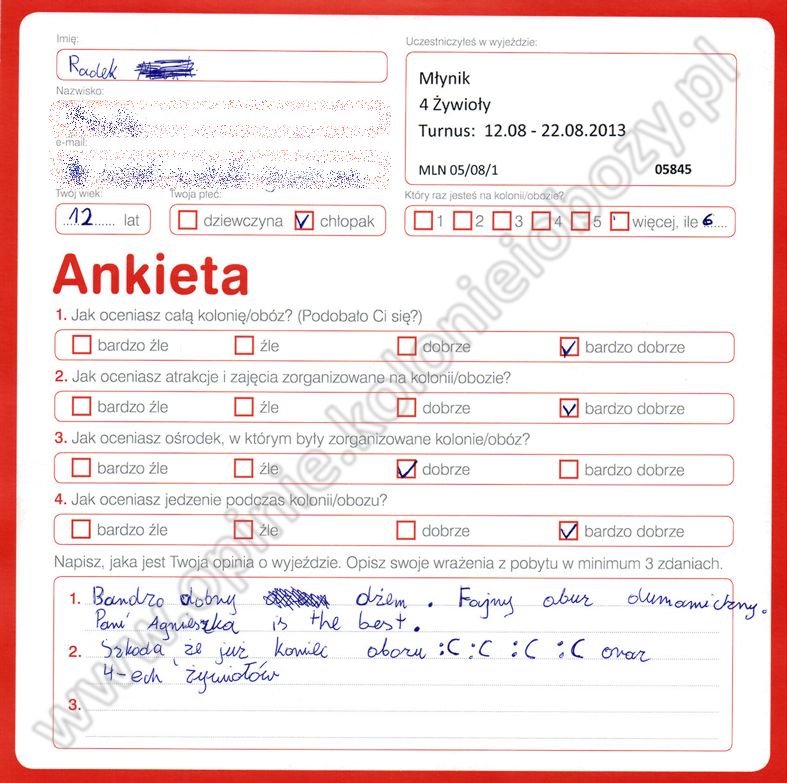 Imię:
Radek
Nazwisko:
e-mail:
Twój wiek:
12 lat
Twoja płeć:
dziewczyna chłopak
Uczestniczyłeś w wyjeździe:
Młynik
4 Żywioły
Turnus: 12.08 - 22.08.2013
MLN 05/08/1 05845
Który raz jesteś na kolonii/obozie?
1 2 3 4 5 więcej, ile 6
Ankieta
1. Jak oceniasz całą kolonię/obóz? (Podobało Ci się?)
bardzo źle źle dobrze bardzo dobrze
2. Jak oceniasz atrakcje i zajęcia zorganizowane na kolonii/obozie?
bardzo źle źle dobrze bardzo dobrze
3. Jak oceniasz ośrodek, w którym były zorganizowane kolonie/obóz?
bardzo źle źle dobrze bardzo dobrze
4. Jak oceniasz jedzenie podczas kolonii/obozu?
bardzo źle źle dobrze bardzo dobrze
Napisz, jaka jest Twoja opinia o wyjeździe. Opisz swoje wrażenia z pobytu w minimum 3 zdaniach.
1. Bardzo dobry dżem. Fajny
Pani Agnieszka is the best.
2. Szkoda że już koniec obozu :C :C :C :C oraz
4-ech żywiołów
3.
www.opinie.kolonieiobozy.pl